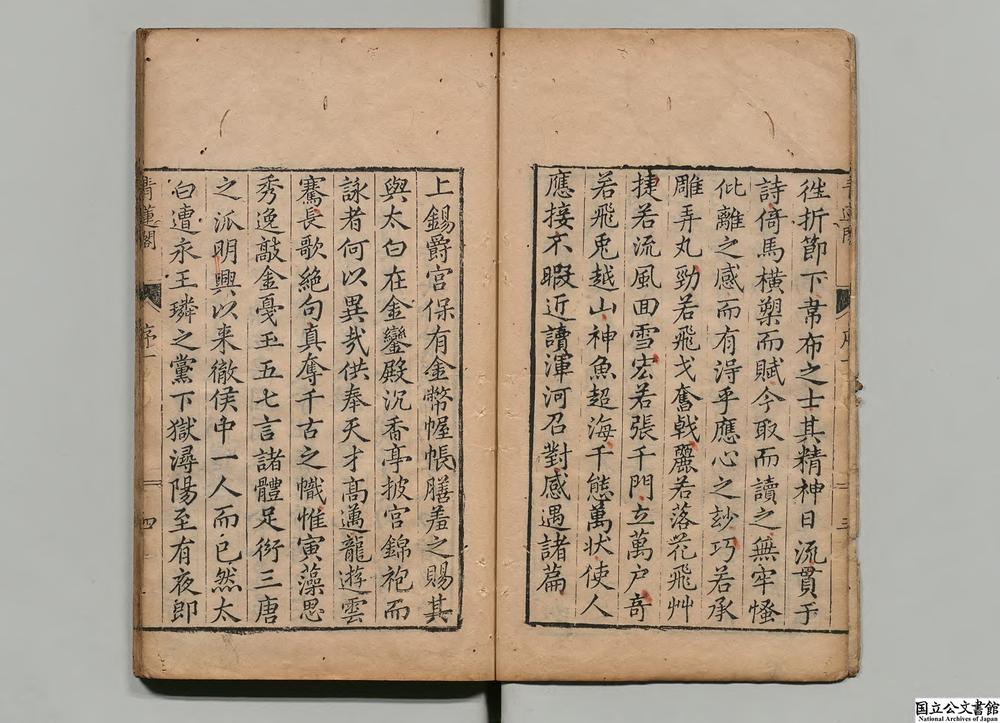 徃折節下韋布之士其精神日流貫于
詩倚馬橫槊而賦今取而讀之無牢慅
仳離之感而有淂乎應心之玅巧若承
雕弄丸勁若飛戈奮戟麗若落花飛艸
捷若流風回雪宏若張千門立萬户奇
若飛兎越山神魚超海千態萬状使人
應接不暇近讀渾河召對感遇諸篇
上錫爵宫保有金幣幄帳膳羞之賜其
與太白在金鑾殿沉香亭披宫錦袍而
詠者何以異㢤供奉天才高邁龍遊雲
騫長歌絶句真奪千古之幟惟寅藻思
秀逸敲金戛玉五七言諸體足衍三唐
之派明興以来徹侯中一人而已然太
白遭永王璘之黨下獄潯陽至有夜郎
青蓮閣
序
四
国立公文書館
National Archives of Japan